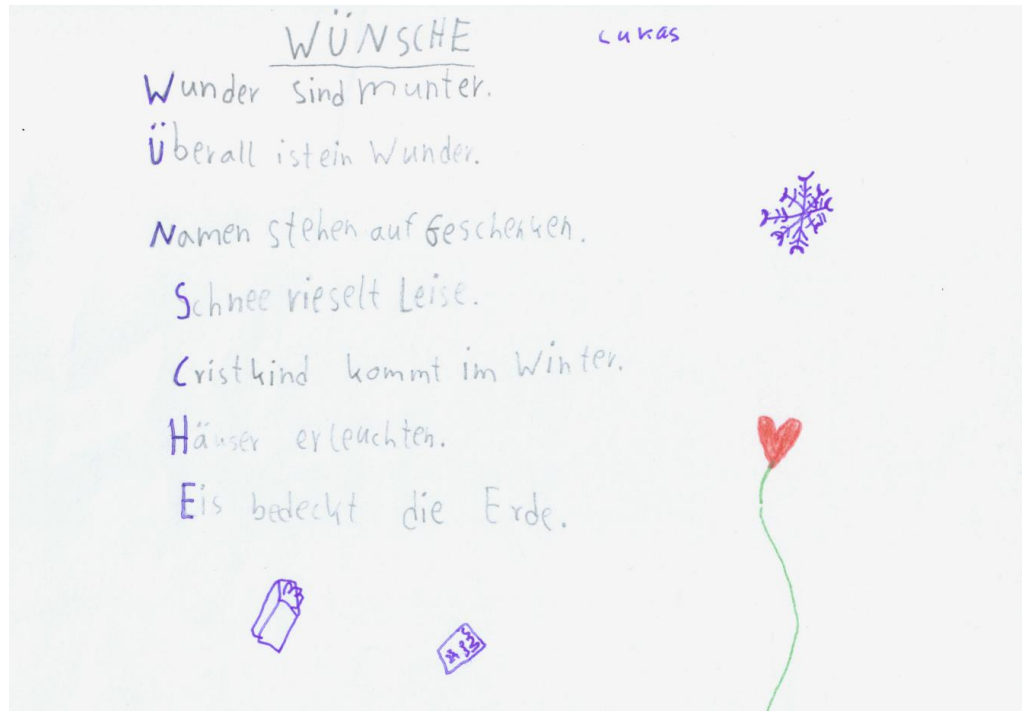 WÜNSCHE
Lukas
Wunder sind munter.
Überall ist ein Wunder.
Namen stehen auf Geschenken.
Schnee rieselt Leise.
Cristkind kommt im Winter.
Häuser erleuchten.
Eis bedeckt die Erde.